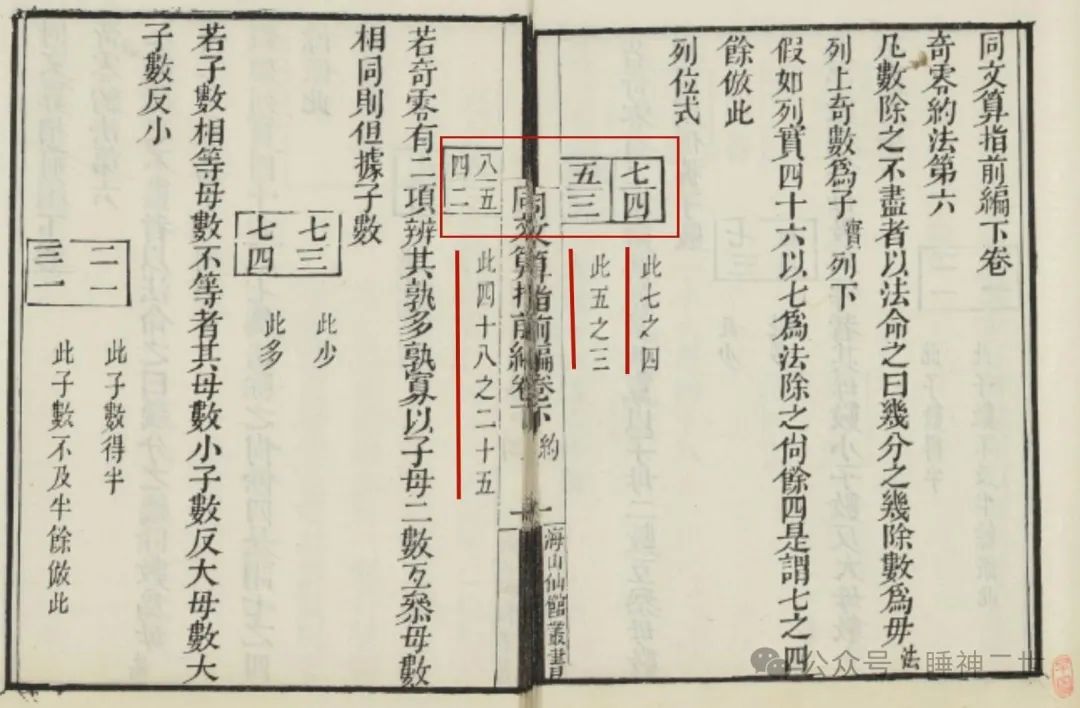 同文算指前編下卷
奇零約法第六
凡數除之不盡者以法命之曰幾分之幾除數爲母法
列上奇數爲子實列下
假如列實四十六以七爲法除之尙餘四是謂七之四
餘倣此
列位式
七四
此七之四
五三
此五之三
同文算指前編卷下
約
一
海山仙館叢書
八五
四二
此四十八之二十五
若奇零有二項辨其孰多孰寡以子母二數互叅母數
相同則但據子數
七三
此少
七四
此多
若子數相等母數不等者其母數小子數反大母數大
子數反小
二一
此子數得半
三一
此子數不及半餘倣此
公众号·睡神二世